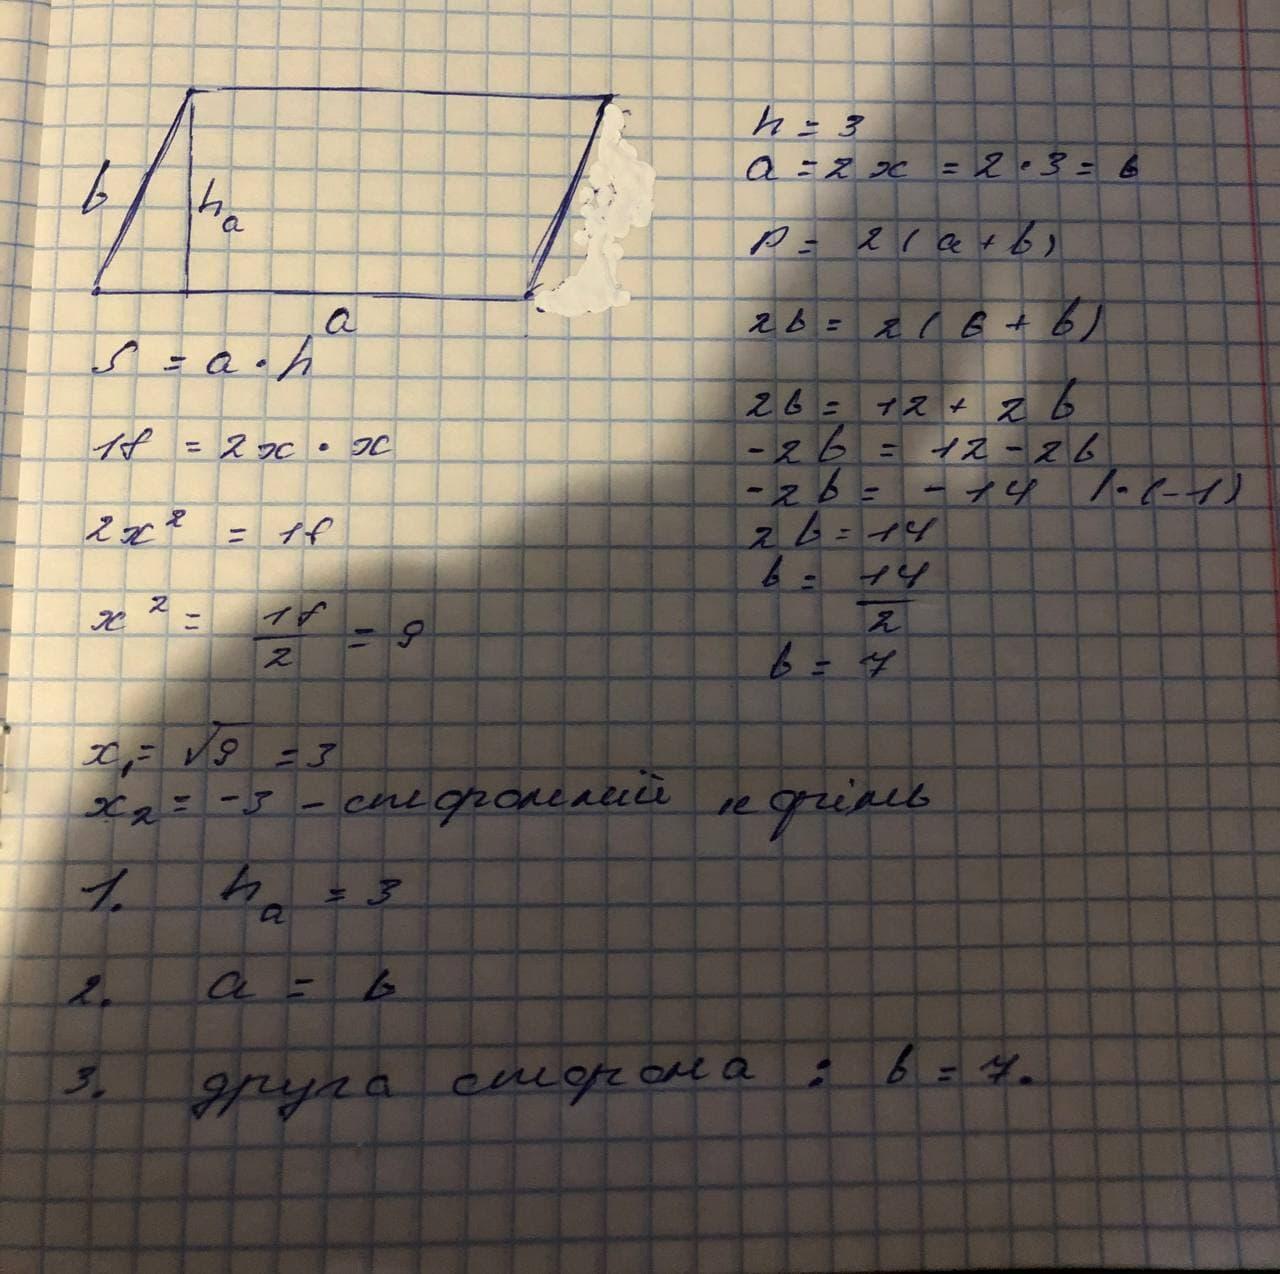 b
hₐ
a
S = a · h
18 = 2x · x
2x² = 18
x² = 18/2 = 9
x₁ = √9 = 3
x₂ = -3 - сторонній корінь
1. hₐ = 3
2. a = 6
3. друга сторона : b = 7.
h = 3
a = 2x = 2 · 3 = 6
P = 2(a + b)
26 = 2(6 + b)
26 = 12 + 2b
-2b = 12 - 26
-2b = -14 | · (-1)
2b = 14
b = 14/2
b = 7